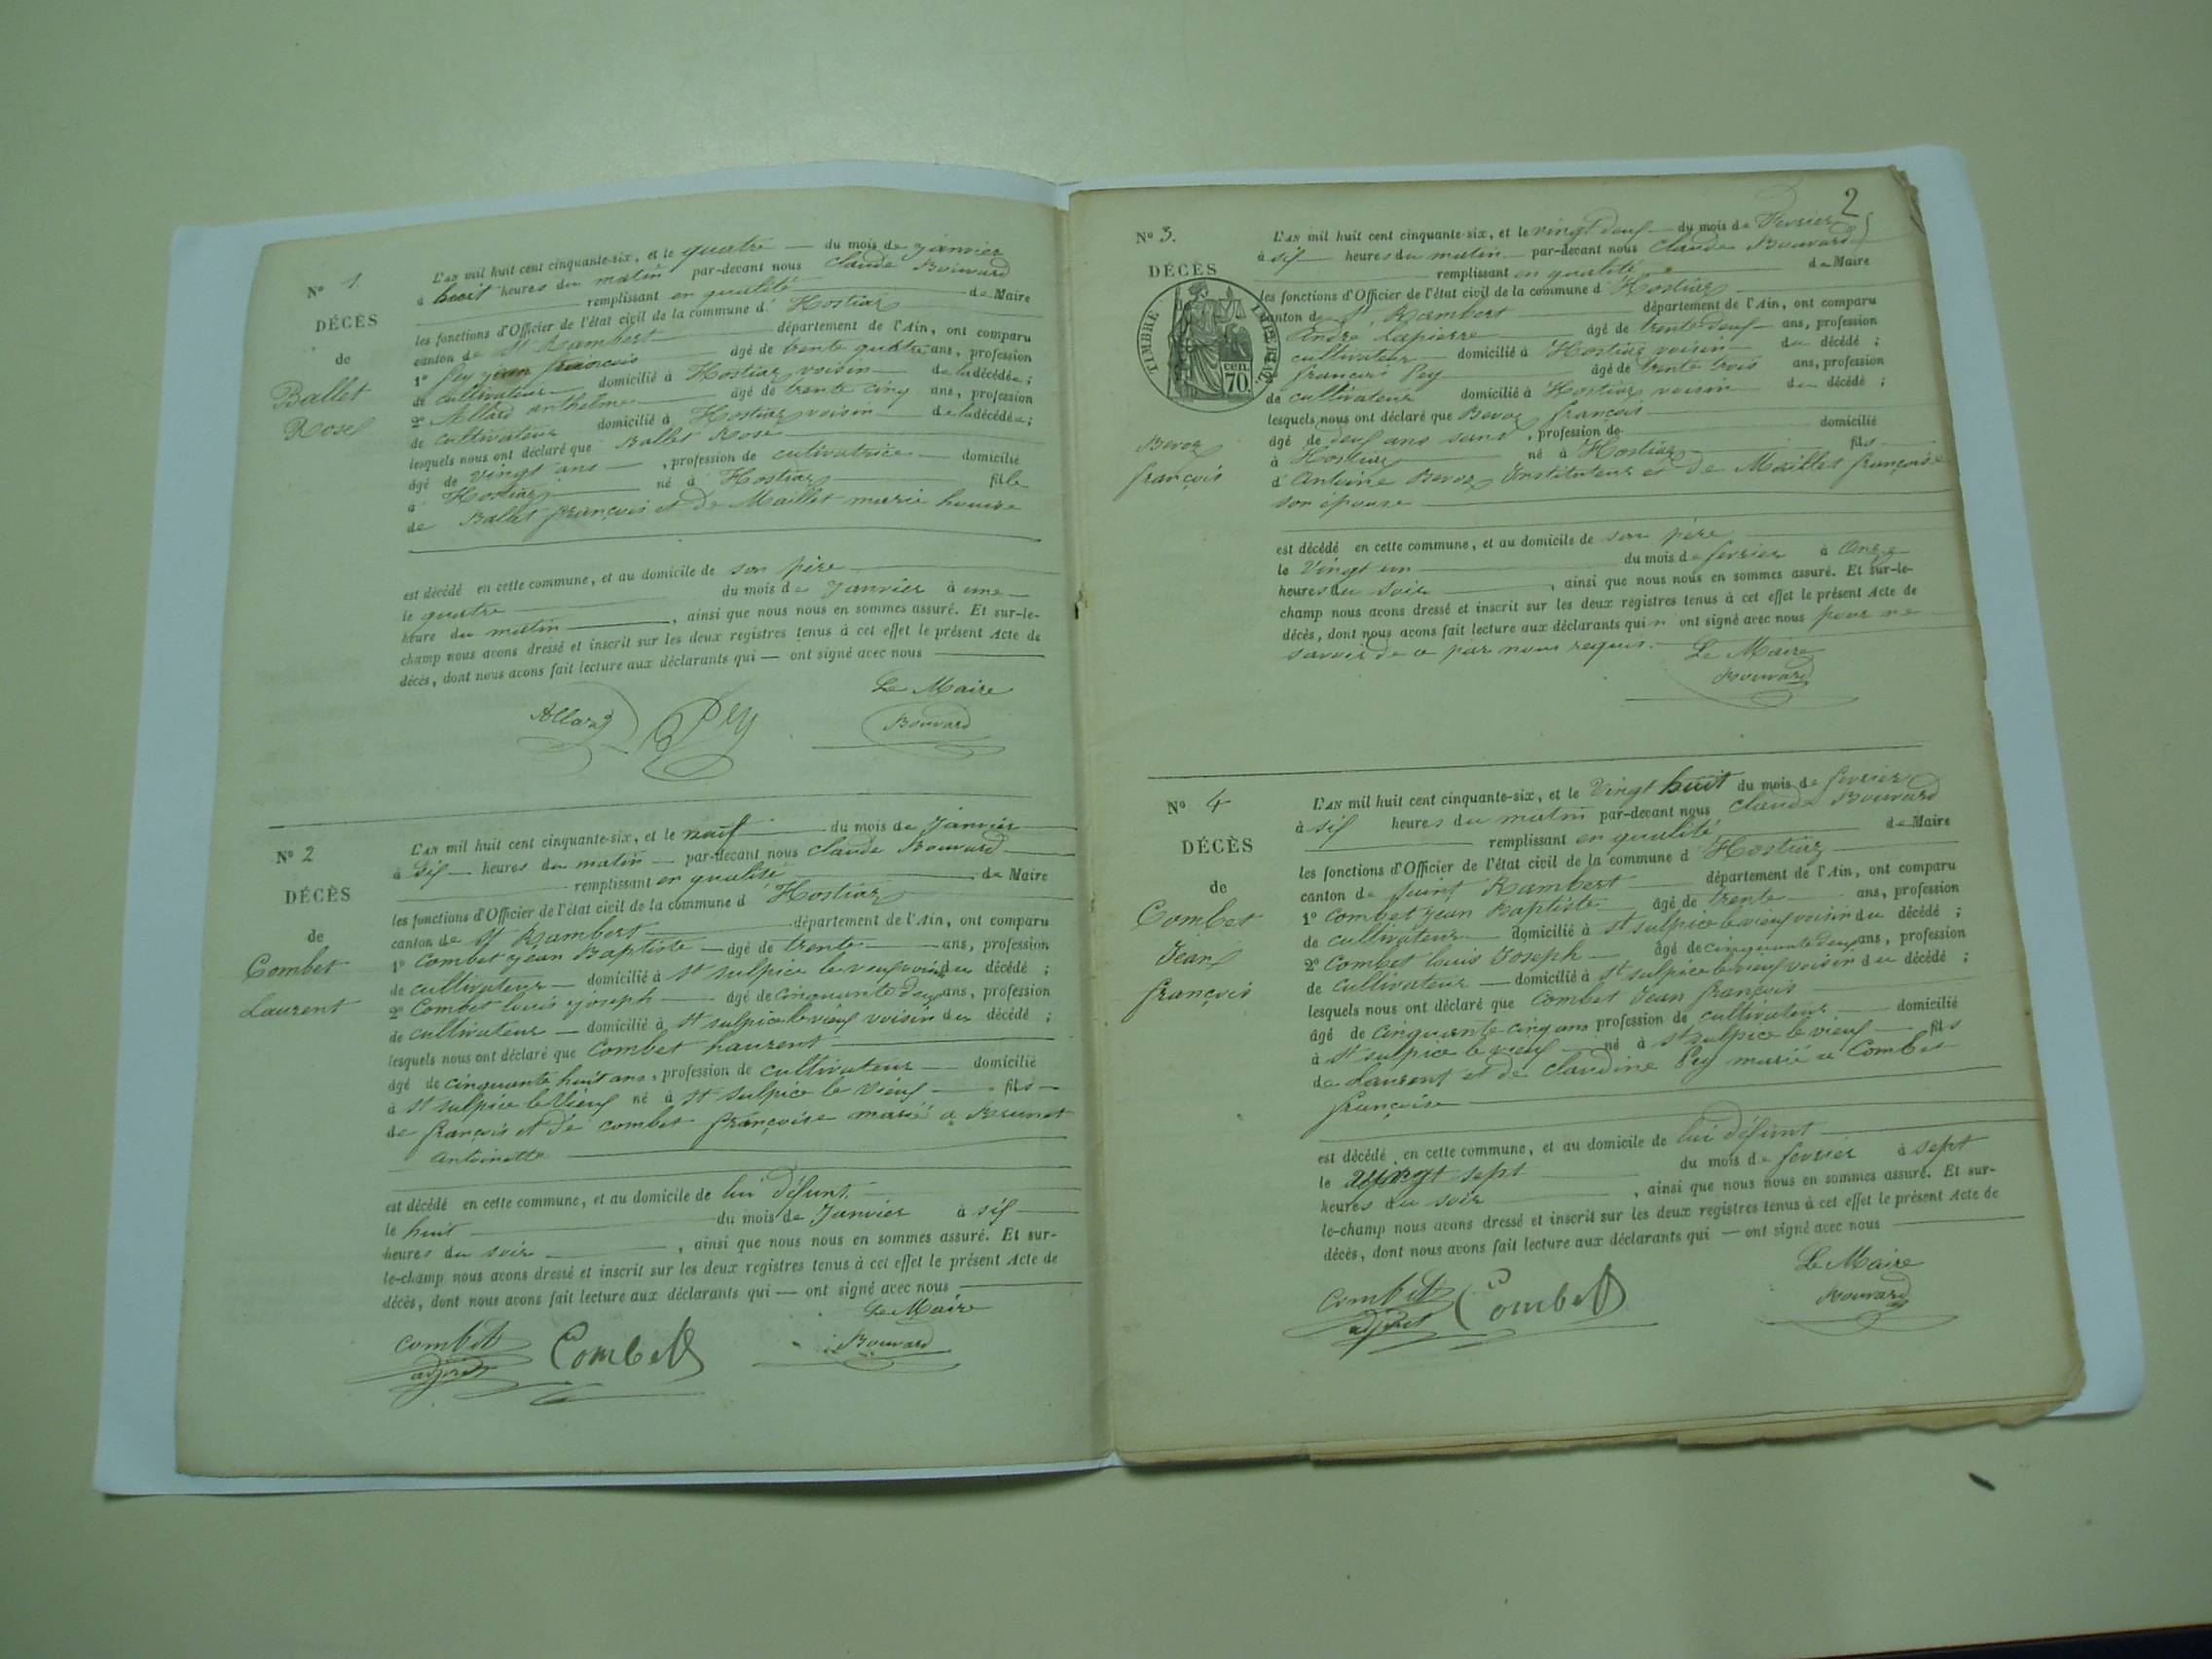 N° 1
DÉCÈS
de
Ballet
Rose
L'AN mil huit cent cinquante-six, et le quatre du mois de janvier
à huit heures du matin par-devant nous Claude Bouvard
remplissant en qualité de Maire
les fonctions d'Officier de l'état civil de la commune d' Hostiaz
canton de St Rambert département de l'Ain, ont comparu
1° Pey jean françois âgé de trente quatre ans, profession
de cultivateur domicilié à Hostiaz voisin de la décédée ;
2° Allard anthelme âgé de trente cinq ans, profession
de cultivateur domicilié à Hostiaz voisin de la décédée ;
lesquels nous ont déclaré que Ballet Rose
âgé de vingt ans , profession de cultivatrice domicilié
à Hostiaz né à Hostiaz fille
de Ballet françois et de Maillet marie louise
est décédé en cette commune, et au domicile de son père
le quatre du mois de Janvier à une
heure du matin , ainsi que nous nous en sommes assuré. Et sur-le-
champ nous avons dressé et inscrit sur les deux registres tenus à cet effet le présent Acte de
décès, dont nous avons fait lecture aux déclarants qui — ont signé avec nous
Le Maire
Allard Pey Bouvard
N° 2
DÉCÈS
de
Combet
Laurent
L'AN mil huit cent cinquante-six, et le neuf du mois de Janvier
à dix heures du matin par-devant nous Claude Bouvard
remplissant en qualité de Maire
les fonctions d'Officier de l'état civil de la commune d Hostiaz
canton de St Rambert département de l'Ain, ont comparu
1° Combet jean Baptiste âgé de trente ans, profession
de cultivateur domicilié à St sulpice le vieux voisin du décédé ;
2° Combet louis joseph âgé de cinquante deux ans, profession
de cultivateur domicilié à St sulpice le vieux voisin du décédé ;
lesquels nous ont déclaré que Combet Laurent
âgé de cinquante huit ans, profession de cultivateur domicilié
à St sulpice le Vieux né à St sulpice le Vieux fils
de françois et de combet françoise marié a Brunet
Antoinette
est décédé en cette commune, et au domicile de lui défunt
le huit du mois de Janvier à six
heures du soir , ainsi que nous nous en sommes assuré. Et sur-
le-champ nous avons dressé et inscrit sur les deux registres tenus à cet effet le présent Acte de
décès, dont nous avons fait lecture aux déclarants qui — ont signé avec nous
Le Maire
Combet Combet Bouvard
adjoint
2
N° 3.
DÉCÈS
TIMBRE IMPÉRIAL
70 cen.
Bevoz
françois
L'AN mil huit cent cinquante-six, et le vingt deux du mois de Février
à six heures du matin par-devant nous Claude Bouvard
remplissant en qualité de Maire
les fonctions d'Officier de l'état civil de la commune d' Hostiaz
canton de St Rambert département de l'Ain, ont comparu
André Lapierre âgé de trente deux ans, profession
cultivateur domicilié à Hostiaz voisin du décédé ;
françois Pey âgé de trente trois ans, profession
de cultivateur domicilié à Hostiaz voisin du décédé ;
lesquels nous ont déclaré que Bevoz françois
âgé de deux ans sans , profession de domicilié
à Hostiaz né à Hostiaz fils
d' Antoine Bevoz Instituteur et de Maillet françoise
son épouse
est décédé en cette commune, et au domicile de son père
le Vingt un du mois de fevrier à Onze
heures du soir , ainsi que nous nous en sommes assuré. Et sur-le-
champ nous avons dressé et inscrit sur les deux registres tenus à cet effet le présent Acte de
décès, dont nous avons fait lecture aux déclarants qui n' ont signé avec nous pour ne
savoir de ce par nous requis. Le Maire
Bouvard
N° 4
DÉCÈS
de
Combet
Jean
françois
L'AN mil huit cent cinquante-six, et le Vingt huit du mois de fevrier
à six heures du matin par-devant nous Claude Bouvard
remplissant en qualité de Maire
les fonctions d'Officier de l'état civil de la commune d Hostiaz
canton de saint Rambert département de l'Ain, ont comparu
1° Combet jean Baptiste âgé de trente ans, profession
de cultivateur domicilié à St sulpice le vieux voisin du décédé ;
2° Combet louis Joseph âgé de cinquante deux ans, profession
de cultivateur domicilié à St sulpice le vieux voisin du décédé ;
lesquels nous ont déclaré que Combet Jean françois
âgé de cinquante cinq ans profession de cultivateur domicilié
à St sulpice le vieux né à St sulpice le vieux fils
de Laurent et de claudine Pey marié a Combet
françoise
est décédé en cette commune, et au domicile de lui défunt
le vingt sept du mois de fevrier à sept
heures du soir , ainsi que nous nous en sommes assuré. Et sur-
le-champ nous avons dressé et inscrit sur les deux registres tenus à cet effet le présent Acte de
décès, dont nous avons fait lecture aux déclarants qui — ont signé avec nous
Le Maire
Combet Combet Bouvard
adjoint